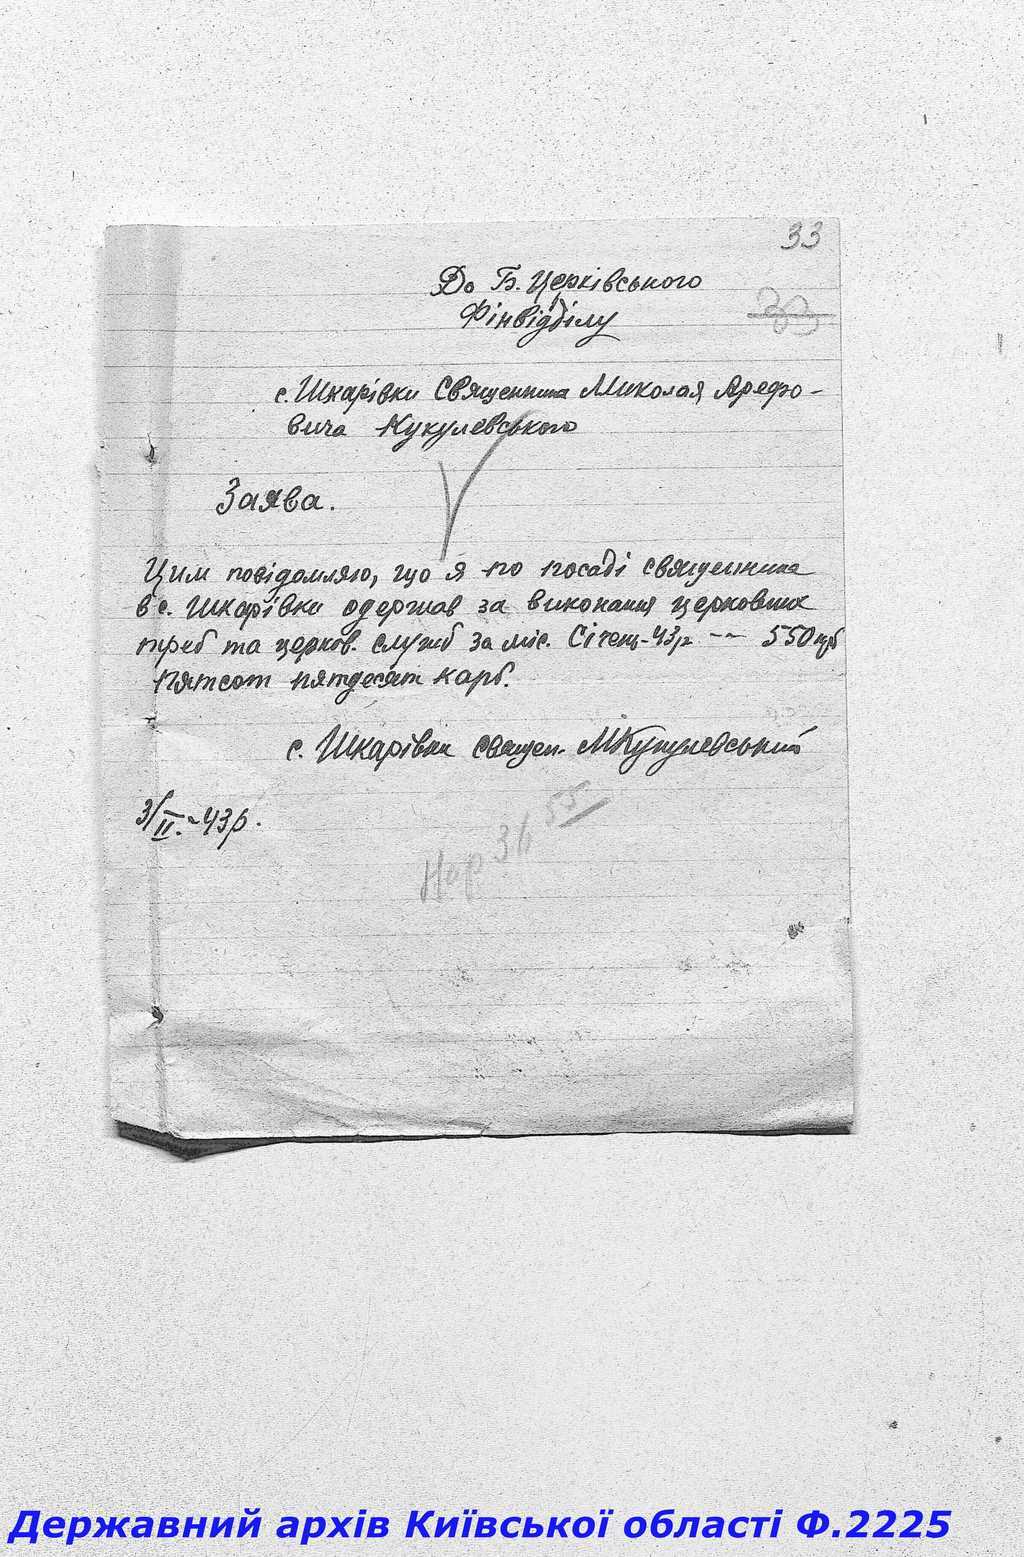 33
До Б. Церківського
Фінвідділу
33
с. Шкарівки Священника Миколая Арефо-
вича Кукулевського
Заява.
Цим повідомляю, що я по посаді священника
в с. Шкарівки одержав за виконання церковних
треб та церков. служб за міс. Січень-43р -- 550 крб
Пятсот пятдесят карб.
с. Шкарівки свящён. МКукулевський
3/II.-43р.
55
Державний архів Київської області Ф.2225